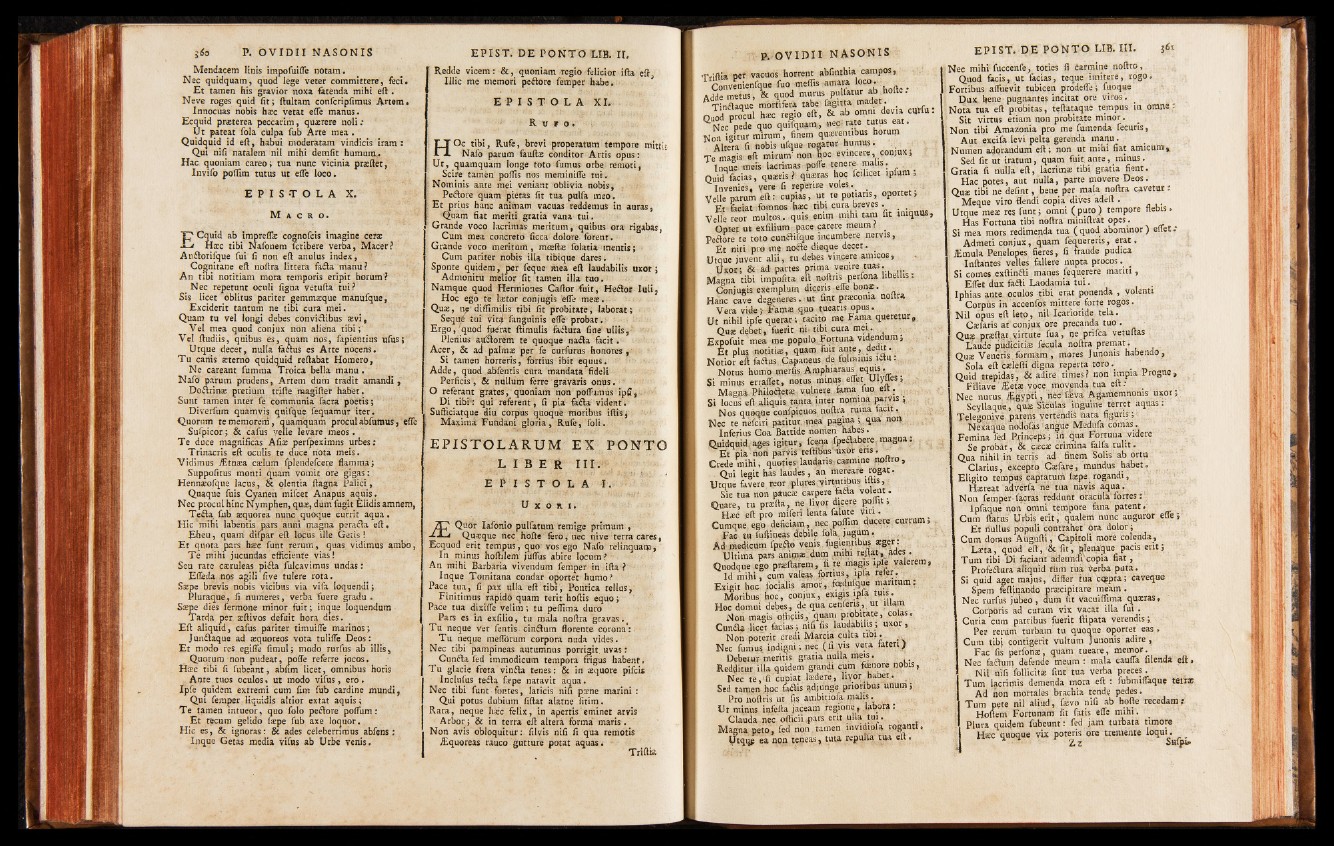 360 P. OVIDII NASONIS
Mendacem linis impoſuiſſe notam.
Nec quidquam, quod lege veter committere, feci.
Et tamen his gravior noxa fatenda mihi eſt.
Neve roges quid ſit; ſtultam conſcripſimus Artem.
Innocuas nobis hæc vetat eſſe manus.
Ecquid præterea peccarim, quærere noli:
Ut pateat ſola culpa ſub Arte mea.
Quidquid id eſt, habui moderatam vindicis iram:
Qui niſi natalem nil mihi demſit humum.
Hac quoniam careo; tua nunc vicinia præſtet,
Inviſo poſſim tutus ut eſſe loco.
EPISTOLA X.
MACRO.
ECquid ab impreſſæ cognoſcis imagine ceræ
Hæc tibi Naſonem ſcribere verba, Macer?
Auctoriſque ſui ſi non eſt anulus index,
Cognitane eſt noſtra littera facta manu?
An tibi notitiam mora temporis eripit horum?
Nec repetunt oculi ſigna vetuſta tui?
Sis licet oblitus pariter gemmæque manuſque,
Exciderit tantum ne tibi cura mei.
Quam tu vel longi debes convictibus ævi,
Vel mea quod conjux non aliena tibi;
Vel ſtudiis, quibus es, quam nos, ſapientius uſus;
Utque decet, nulla factus es Arte nocens.
Tu canis æterno quidquid reſtabat Homero,
Ne careant ſumma Troica bella manu.
Naſo parum prudens, Artem dum tradit amandi,
Doctrinæ pretium triſte magiſter habet.
Sunt tamen inter ſe communia ſacra poetis;
Diverſum quamvis quiſque ſequamur iter.
Quorum te memorem, quamquam procul abſumus, eſſe
Suſpicor; & caſus velle levare meos.
Te duce magnificas Aſiæ perſpeximus urbes:
Trinacris eſt oculis te duce nota meis.
Vidimus Ætnæa cælum ſplendeſcere flamma;
Suppoſitus monti quam vomit ore gigas:
Hennæoſque lacus, & olentia ſtagna Palici,
Quaque ſuis Cyanen miſcet Anapus aquis.
Nec procul hinc Nymphen, quæ, dum fugit Elidis amnem,
Tecta ſub æquorea nunc quoque currit aqua.
Hic mihi labentis pars anni magna peracta eſt.
Eheu, quam diſpar eſt locus ille Getis!
Et quota pars hæc ſunt rerum, quas vidimus ambo,
Te mihi jucundas efficiente vias!
Seu rate cæruleas picta ſulcavimus undas:
Eſſeda nos agili ſive tulere rota.
Sæpe brevis nobis vicibus via viſa loquendi;
Pluraque, ſi numeres, verba fuere gradu.
Sæpe dies ſermone minor fuit; inque loquendum
Tarda per æſtivos defuit hora dies.
Eſt aliquid, caſus pariter timuiſſe marinos;
Junctaque ad æquoreos vota tuliſſe Deos:
Et modo res egiſſe ſimul; modo rurſus ab illis,
Quorum non pudeat, poſſe referre jocos.
Hæc tibi ſi ſubeant, abſim licet, omnibus horis
Ante tuos oculos, ut modo viſus, ero.
Ipſe quidem extremi cum ſim ſub cardine mundi,
Qui ſemper liquidis altior extat aquis;
Te tamen intueor, quo ſolo pectore poſſum:
Et tecum gelido ſæpe ſub axe loquor.
Hic es, & ignoras: & ades celeberrimus abſens:
Inque Getas media viſus ab Urbe venis.
EPIST. DE PONTO LIB. II.
Redde vicem: &, quoniam regio felicior iſta eſt,
Illic me memori pectore ſemper habe.
EPISTOLA XI.
RUFO.
HOc tibi, Rufe, brevi properatum tempore mittit
Naſo parum fauſtæ conditor Artis opus:
Ut, quamquam longe toto ſumus orbe remoti,
Scire tamen poſſis nos meminiſſe tui.
Nominis ante mei veniant oblivia nobis,
Pectore quam pietas ſit tua pulſa meo.
Et prius hanc animam vacuas reddemus in auras,
Quam fiat meriti gratia vana tui.
Grande voco lacrimas meritum, quibus ora rigabas,
Cum mea concreto ſicca dolore forent.
Grande voco meritum, mœſtæ ſolatia mentis;
Cum pariter nobis illa tibique dares.
Sponte quidem, per ſeque mea eſt laudabilis uxor;
Admonitu melior fit tamen illa tuo.
Namque quod Hermiones Caſtor fuit, Hector Iuli,
Hoc ego te lætor conjugis eſſe meæ.
Quæ, ne diſſimilis tibi ſit probitate, laborat;
Seque tui vita ſanguinis eſſe probat.
Ergo, quod fuerat ſtimulis factura ſine ullis,
Plenius auctorem te quoque nacta facit.
Acer, & ad palmæ per ſe curſurus honores,
Si tamen horteris, fortius ibit equus.
Adde, quod abſentis cura mandata fideli
Perficis, & nullum ferre gravaris onus.
O referant grates, quoniam non poſſumus ipſi,
Di tibi: qui referent, ſi pia facta vident.
Sufficiatque diu corpus quoque moribus iſtis,
Maxima Fundani gloria, Rufe, ſoli.
EPISTOLARUM EX PONTO
LIBER III.
EPISTOLA I.
UXORI.
ÆQuor Iaſonio pulſatum remige primum,
Quæque nec hoſte fero, nec nive terra cares,
Ecquod erit tempus, quo vos ego Naſo relinquam,
In minus hoſtilem juſſus abire locum?
An mihi Barbaria vivendum ſemper in iſta?
Inque Tomitana condar oportet humo?
Pace tua, ſi pax ulla eſt tibi, Pontica tellus,
Finitimus rapido quam terit hoſtis equo;
Pace tua dixiſſe velim; tu peſſima duro
Pars es in exſilio, tu mala noſtra gravas.
Tu neque ver ſentis cinctum florente corona:
Tu neque meſſorum corpora nuda vides.
Nec tibi pampineas autumnus porrigit uvas:
Cuncta ſed immodicum tempora frigus habent.
Tu glacie freta vincta tenes: & in æquore piſcis
Incluſus tecta ſæpe natavit aqua.
Nec tibi ſunt fontes, laticis niſi pæne marini:
Qui potus dubium ſiſtat alatne ſitim.
Rara, neque hæc felix, in apertis eminet arvis
Arbor; & in terra eſt altera forma maris.
Non avis obloquitur: ſilvis niſi ſi qua remotis
Æquoreas rauco gutture potat aquas.
Triſtia
P. OVIDII NASONIS
Triſtia per vacuos horrent abſinthia campos,
Convenienſque ſuo meſſis amara loco.
Adde metus, & quod murus pulſatur ab hoſte:
Tinctaque mortifera tabe ſagitta madet.
Quod procul hæc regio eſt, & ab omni devia curſu:
Nec pede quo quiſquam, nec rate tutus eat.
Non igitur mirum, finem quærentibus horum
Altera ſi nobis uſque rogatur humus.
Te magis eſt mirum non hoc evincere, conjux;
Inque meis lacrimas poſſe tenere malis.
Quid facias, quæris? quæras hoc ſcilicet ipſum;
Invenies, vere ſi reperire voles.
Velle parum eſt: cupias, ut te potiaris, oportet;
Et faciat ſomnos hæc tibi cura breves.
Velle reor multos. quis enim mihi tam ſit iniquus,
Optet ut exſilium pace carere meum?
Pectore te toto cunctiſque incumbere nervis,
Et niti pro me nocte dieque decet.
Utque juvent alii, tu debes vincere amicos,
Uxor; & ad partes prima venire tuas.
Magna tibi impoſita eſt noſtris perſona libellis:
Conjugis exemplum diceris eſſe bonæ.
Hanc cave degeneres. ut ſint præconia noſtra
Vera vide; Famæ quo tuearis opus.
Ut nihil ipſe querar; tacito me Fama queretur,
Quæ debet, fuerit ni tibi cura mei.
Expoſuit mea me populo Fortuna videndum;
Et plus notitiæ, quam fuit ante, dedit.
Notior eſt factus Capaneus de fulminis ictu:
Notus humo merſis Amphiaraus equis.
Si minus erraſſet, notus minus eſſet Ulyſſes;
Magna Philoctetæ vulnere fama ſuo eſt.
Si locus eſt aliquis tanta inter nomina parvis;
Nos quoque conſpicuos noſtra ruina facit.
Nec te neſciri patitur mea pagina; qua non
Inferius Coa Battide nomen habes.
Quidquid ages igitur, ſcena ſpectabere magna:
Et pia non parvis teſtibus uxor eris.
Crede mihi, quoties laudaris carmine noſtro,
Qui legit has laudes, an mereare rogat.
Utque favere reor plures virtutibus iſtis,
Sic tua non paucæ carpere facta volent.
Quare, tu præſta, ne livor dicere poſſit;
Hæc eſt pro miſeri lenta ſalute viri.
Cumque ego deficiam, nec poſſim ducere currum;
Fac tu ſuſtineas debile ſola jugum.
Ad medicum ſpecto venis fugientibus æger:
Ultima pars animæ dum mihi reſtat, ades.
Quodque ego præſtarem, ſi te magis ipſe valerem,
Id mihi, cum valeas fortius, ipſa refer.
Exigit hoc ſocialis amor, fœduſque maritum:
Moribus hoc, conjux, exigis ipſa tuis.
Hoc domui debes, de qua cenſeris, ut illam
Non magis officiis, quam probitate, colas.
Cuncta licet facias; niſi ſis laudabilis uxor,
Non poterit credi Marcia culta tibi.
Nec ſumus indigni: nec (ſi vis vera fateri)
Debetur meritis gratia nulla meis.
Redditur illa quidem grandi cum fœnore nobis,
Nec te, ſi cupiat lædere, livor habet.
Sed tamen hoc factis adjunge prioribus unum;
Pro noſtris ut ſis ambitioſa malis.
Ut minus infeſta jaceam regione, labora:
Clauda nec officii pars erit ulla tui.
Magna peto, ſed non tamen invidioſa roganti.
Utque ea non teneas, tuta repulſa tua eſt.
EPIST. DE PONTO LIB. III. 361
Nec mihi ſuccenſe, toties ſi carmine noſtro,
Quod facis, ut facias, teque imitere, rogo.
Fortibus aſſuevit tubicen prodeſſe; ſuoque
Dux bene pugnantes incitat ore viros.
Nota tua eſt probitas, teſtataque tempus in omne:
Sit virtus etiam non probitate minor.
Non tibi Amazonia pro me ſumenda ſecuris,
Aut exciſa levi pelta gerenda manu.
Numen adorandum eſt: non ut mihi fiat amicum,
Sed ſit ut iratum, quam fuit ante, minus.
Gratia ſi nulla eſt, lacrimæ tibi gratia fient.
Hac potes, aut nulla, parte movere Deos.
Quæ tibi ne deſint, bene per mala noſtra cavetur:
Meque viro flendi copia dives adeſt.
Utque meæ res ſunt; omni (puto) tempore flebis.
Has Fortuna tibi noſtra miniſtrat opes.
Si mea mors redimenda tua (quod abominor) eſſet:
Admeti conjux, quam ſequereris, erat.
Æmula Penelopes fieres, ſi fraude pudica
Inſtantes velles fallere nupta procos.
Si comes exſtincti manes ſequerere mariti,
Eſſet dux facti Laodamia tui.
Iphias ante oculos tibi erat ponenda, volenti
Corpus in accenſos mittere forte rogos.
Nil opus eſt leto, nil Icariotide tela.
Cæſaris at conjux ore precanda tuo.
Quæ præſtat virtute ſua, ne priſca vetuſtas
Laude pudicitiæ ſecula noſtra premat.
Quæ Veneris formam, mores Junonis habendo,
Sola eſt cæleſti digna reperta toro.
Quid trepidas, & adire times? non impia Progne,
Filiave Æetæ voce movenda tua eſt:
Nec nurus Ægypti, nec ſæva Agamemnonis uxor;
Scyllaque, quæ Siculas inguine terret aquas:
Telegonive parens vertendis nata figuris:
Nexaque nodoſas angue Meduſa comas.
Femina ſed Princeps; in qua Fortuna videre
Se probat, & cæcæ crimina falſa tulit.
Qua nihil in terris ad finem Solis ab ortu
Clarius, excepto Cæſare, mundus habet.
Eligito tempus captatum ſæpe rogandi,
Hæreat adverſa ne tua navis aqua.
Non ſemper ſacras reddunt oracula ſortes:
Ipſaque non omni tempore fana patent.
Cum ſtatus Urbis erit, qualem nunc auguror eſſe;
Et nullus populi contrahet ora dolor;
Cum domus Auguſti, Capitoli more colenda,
Læta, quod eſt, & ſit, plenaque pacis erit;
Tum tibi Di faciant adeundi copia fiat,
Profectura aliquid tum tua verba puta.
Si quid aget majus, differ tua cœpta; caveque
Spem feſtinando præcipitare meam.
Nec rurſus jubeo, dum ſit vacuiſſima quæras,
Corporis ad curam vix vacat illa ſui.
Curia cum patribus fuerit ſtipata verendis;
Per rerum turbam tu quoque oportet eas.
Cum tibi contigerit vultum Junonis adire,
Fac ſis perſonæ, quam tueare, memor.
Nec factum defende meum: mala cauſſa ſilenda eſt.
Nil niſi ſollicitæ ſint tua verba preces.
Tum lacrimis demenda mora eſt: ſubmiſſaque terræ
Ad non mortales brachia tende pedes.
Tum pete nil aliud, ſævo niſi ab hoſte recedam:
Hoſtem Fortunam ſit ſatis eſſe mihi.
Plura quidem ſubeunt: ſed jam turbata timore
Hæc quoque vix poteris ore tremente loqui.
Zz Suſpi-